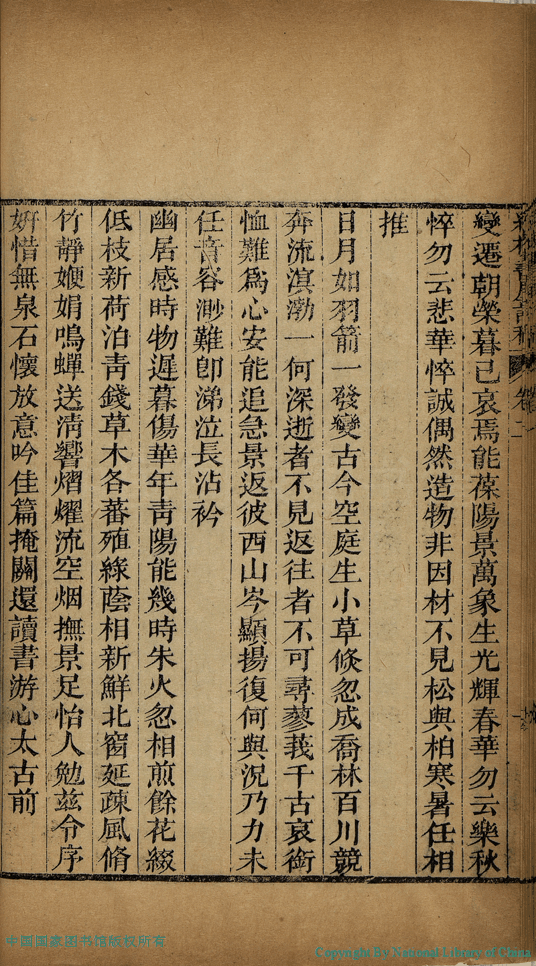 變遷朝榮暮已哀焉能葆陽景萬象生光輝春華勿云樂秋
悴勿云悲華悴誠偶然造物非因材不見松與柏寒暑任相
推
日月如羽箭一發變古今空庭生小草倐忽成喬林百川競
奔流滇渤一何深逝者不見返往者不可尋蓼莪千古哀銜
恤難爲心安能追急景返彼西山岑顯揚復何與況乃力未
任音容渺難卽涕泣長沾衿
幽居感時物遲暮傷華年靑陽能幾時朱火忽相煎餘花綴
低枝新荷泊靑錢草木各蕃殖綠蔭相新鮮北窗延疎風脩
竹靜㛹娟鳴蟬送淸響熠燿流空烟撫景足怡人勉茲令序
妍惜無泉石懷放意吟佳篇掩關還讀書游心太古前
中国国家图书馆版权所有
Copyright By National Library of China